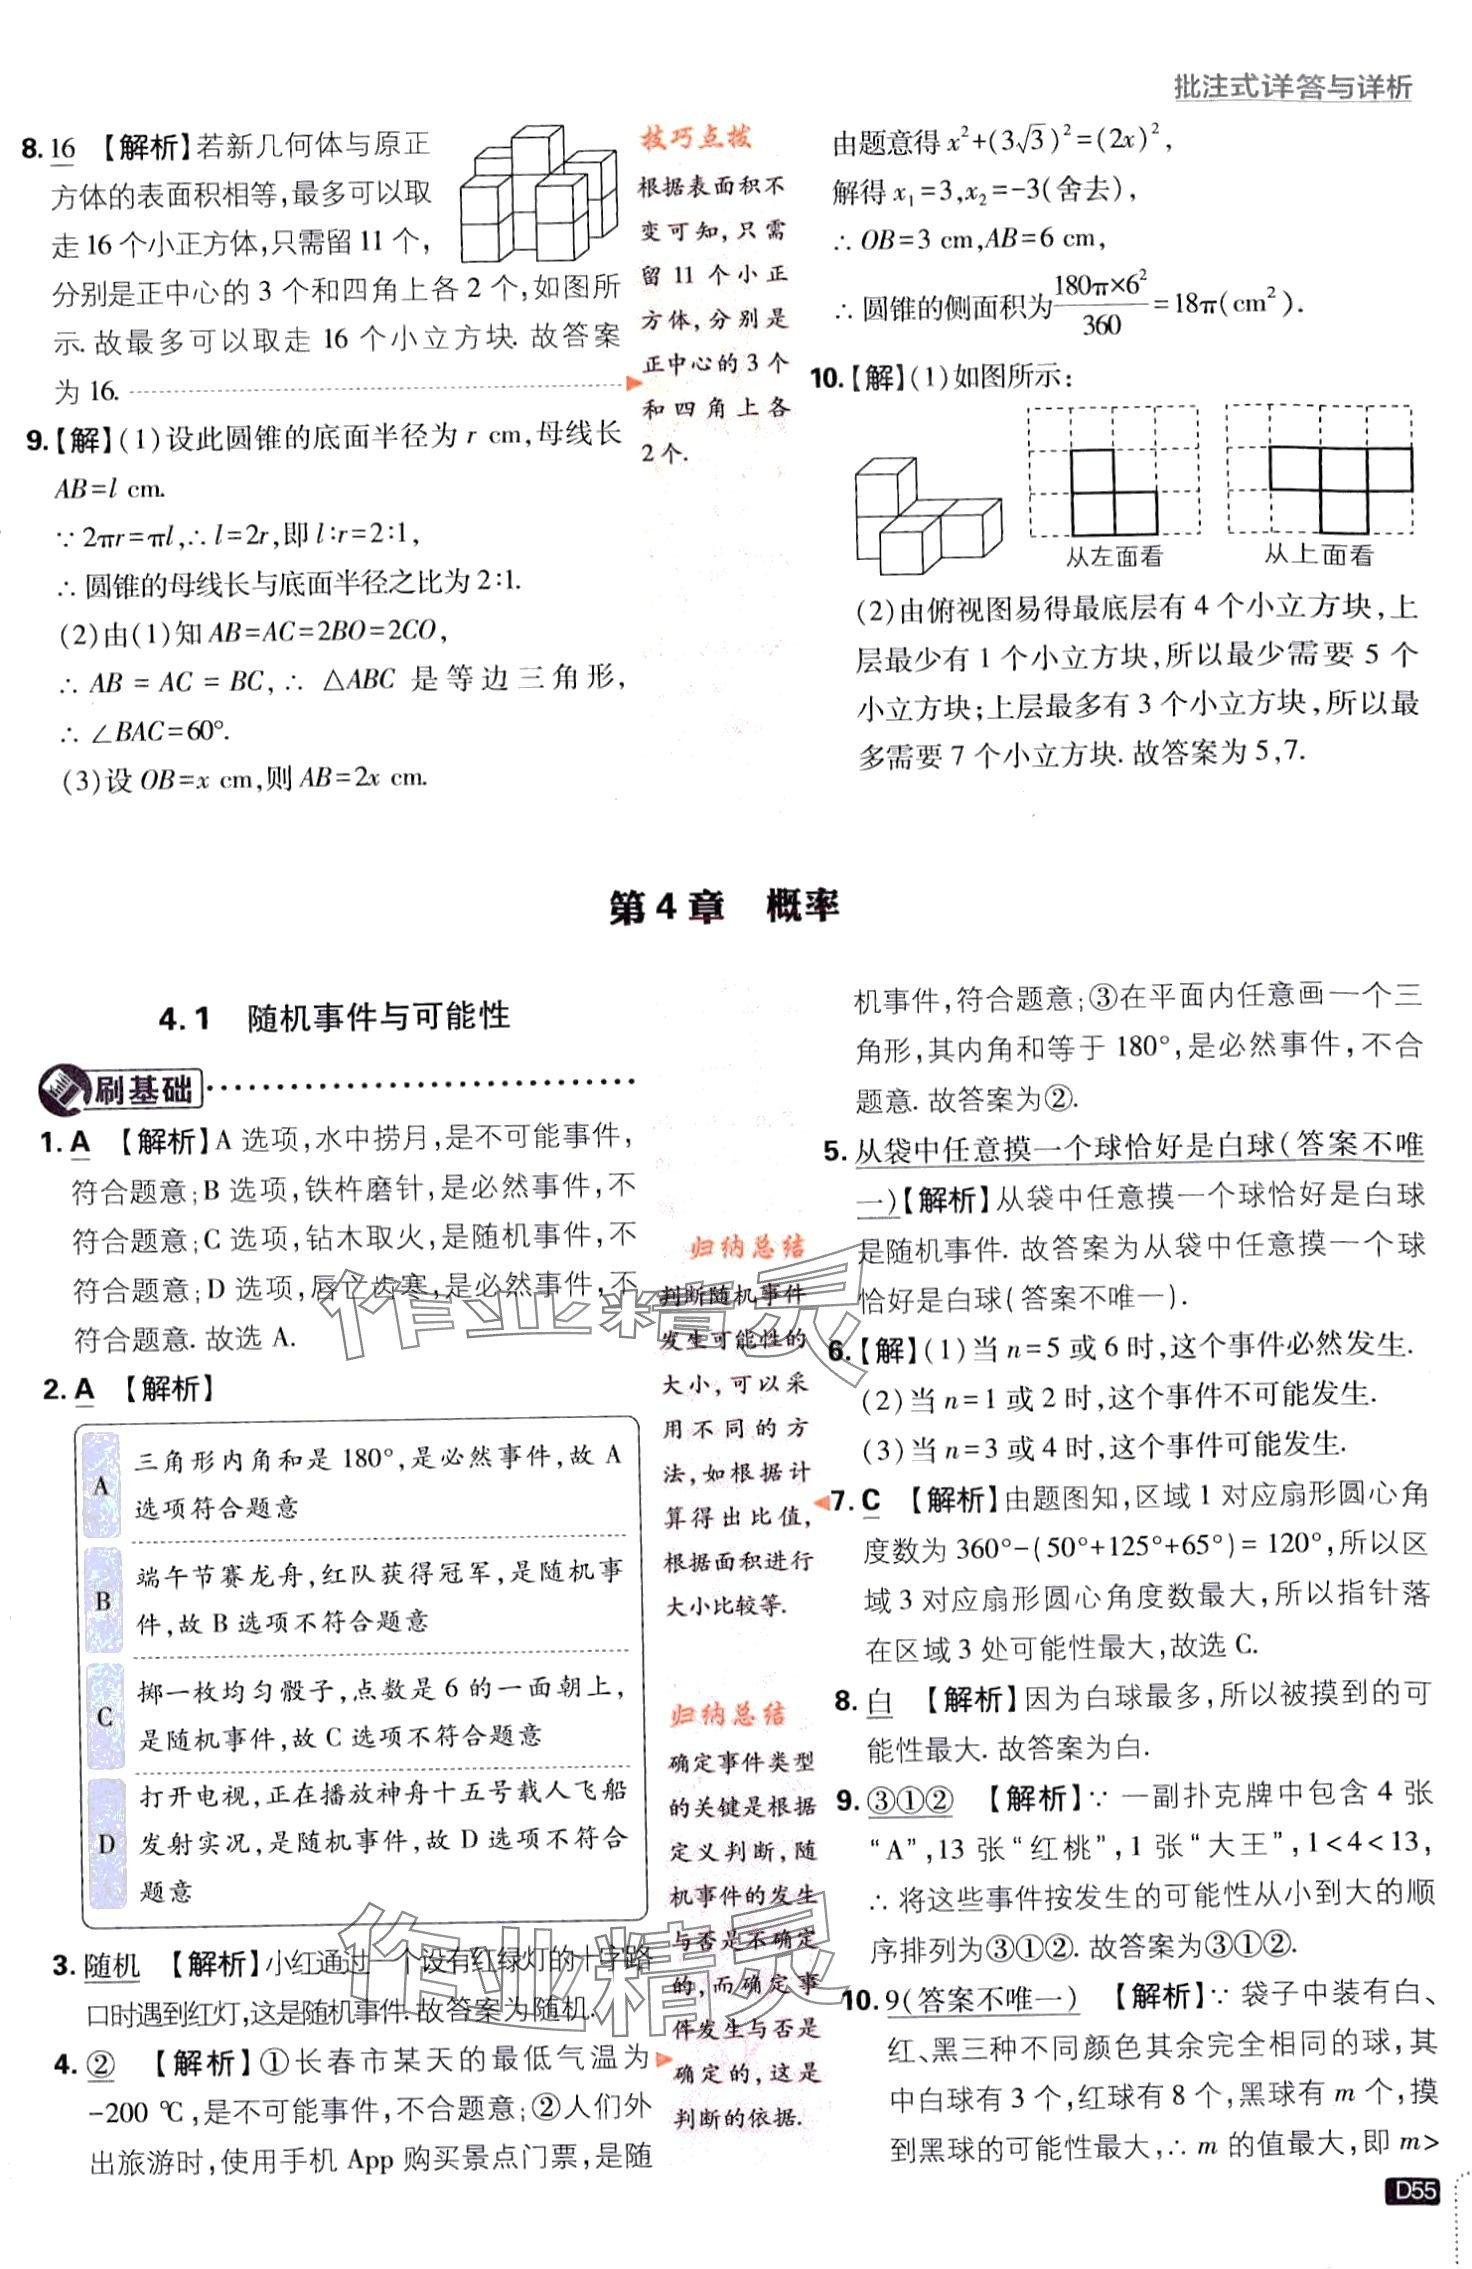 批注式详答与详析
8. 16 【解析】若新几何体与原正
方体的表面积相等,最多可以取
走 16 个小正方体,只需留 11 个,
分别是正中心的 3 个和四角上各 2 个,如图所
示. 故最多可以取走 16 个小立方块. 故答案
为 16.
9.【解】(1)设此圆锥的底面半径为 r cm,母线长
AB=l cm.
∵2πr=πl,∴l=2r,即 l∶r=2∶1,
∴圆锥的母线长与底面半径之比为 2∶1.
(2)由(1)知 AB=AC=2BO=2CO,
∴ AB = AC = BC,∴ △ABC 是等边三角形,
∴∠BAC=60°.
(3)设 OB=x cm,则 AB=2x cm.
技巧点拨
根据表面积不
变可知,只需
留 11 个小正
方体,分别是
正中心的 3 个
和四角上各
2 个.
由题意得 x²+(3√3)²=(2x)²,
解得 x₁=3,x₂=-3(舍去),
∴OB=3 cm,AB=6 cm,
∴圆锥的侧面积为 180π×6²/360 =18π(cm²).
10.【解】(1)如图所示:
从左面看
从上面看
(2)由俯视图易得最底层有 4 个小立方块,上
层最少有 1 个小立方块,所以最少需要 5 个
小立方块;上层最多有 3 个小立方块,所以最
多需要 7 个小立方块. 故答案为 5,7.
第 4 章 概率
4. 1 随机事件与可能性
刷基础
1. A 【解析】A 选项,水中捞月,是不可能事件,
符合题意;B 选项,铁杵磨针,是必然事件,不
符合题意;C 选项,钻木取火,是随机事件,不
符合题意;D 选项,唇亡齿寒,是必然事件,不
符合题意. 故选 A.
2. A 【解析】
A
三角形内角和是 180°,是必然事件,故 A
选项符合题意
B
端午节赛龙舟,红队获得冠军,是随机事
件,故 B 选项不符合题意
C
掷一枚均匀骰子,点数是 6 的一面朝上,
是随机事件,故 C 选项不符合题意
D
打开电视,正在播放神舟十五号载人飞船
发射实况,是随机事件,故 D 选项不符合
题意
3. 随机 【解析】小红通过一个设有红绿灯的十字路
口时遇到红灯,这是随机事件. 故答案为随机.
4. ② 【解析】①长春市某天的最低气温为
-200 ℃,是不可能事件,不合题意;②人们外
出旅游时,使用手机 App 购买景点门票,是随
归纳总结
判断随机事件
发生可能性的
大小,可以采
用不同的方
法,如根据计
算得出比值,
根据面积进行
大小比较等.
归纳总结
确定事件类型
的关键是根据
定义判断,随
机事件的发生
与否是不确定
的,而确定事
件发生与否是
确定的,这是
判断的依据.
机事件,符合题意;③在平面内任意画一个三
角形,其内角和等于 180°,是必然事件,不合
题意. 故答案为②.
5. 从袋中任意摸一个球恰好是白球(答案不唯
一)【解析】从袋中任意摸一个球恰好是白球
是随机事件. 故答案为从袋中任意摸一个球
恰好是白球(答案不唯一).
6.【解】(1)当 n=5 或 6 时,这个事件必然发生.
(2)当 n=1 或 2 时,这个事件不可能发生.
(3)当 n=3 或 4 时,这个事件可能发生.
7. C 【解析】由题图知,区域 1 对应扇形圆心角
度数为 360°-(50°+125°+65°)= 120°,所以区
域 3 对应扇形圆心角度数最大,所以指针落
在区域 3 处可能性最大,故选 C.
8. 白 【解析】因为白球最多,所以被摸到的可
能性最大. 故答案为白.
9. ③①② 【解析】∵ 一副扑克牌中包含 4 张
“A”,13 张“红桃”,1 张“大王”,1<4<13,
∴ 将这些事件按发生的可能性从小到大的顺
序排列为③①②. 故答案为③①②.
10. 9(答案不唯一) 【解析】∵ 袋子中装有白、
红、黑三种不同颜色其余完全相同的球,其
中白球有 3 个,红球有 8 个,黑球有 m 个,摸
到黑球的可能性最大,∴ m 的值最大,即 m>
D55
作业精灵
作业精灵